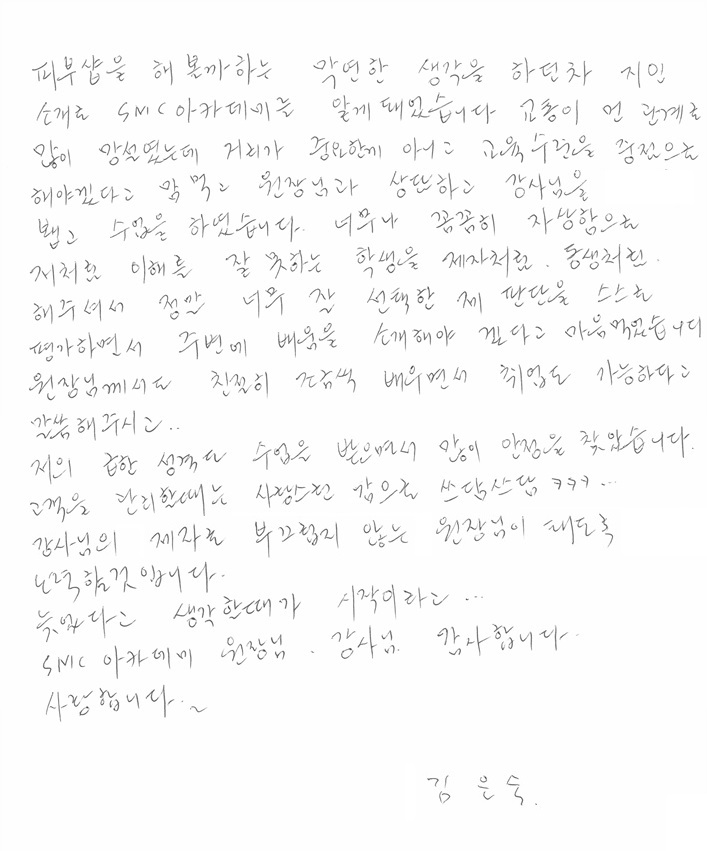 피부샵을 해 볼까하는 막연한 생각을 하던차 지인
소개로 SMC아카데미를 알게돼었습니다 교통이 먼 관계로
많이 망설였는데 거리가 중요한게 아니고 교육수련을 중점으로
해야겠다고 맘 먹고 원장님과 상담하고 강사님을
뵙고 수업을 하였습니다. 너무나 꼼꼼히 자상함으로
저처럼 이해를 잘 못하는 학생을 제자처럼. 동생처럼.
해주셔서 정말 너무 잘 선택한 제 판단을 스스로
평가하면서 주변에 배움을 소개해야 겠다고 마음먹었습니다
원장님께서도 친절히 조금씩 배우면서 취업도 가능하다고
말씀해주시고..
저의 급한 성격도 수업을 받으면서 많이 안정을 찾았습니다.
고객을 관리할때는 사랑스런 감으로 쓰담쓰담 ㅋㅋㅋ...
강사님의 제자로 부끄럽지 않는 원장님이 돼도록
노력할것입니다.
늦었다고 생각할때가 시작이라고...
SMC 아카데미 원장님. 강사님. 감사합니다.
사랑합니다.~
김은숙.